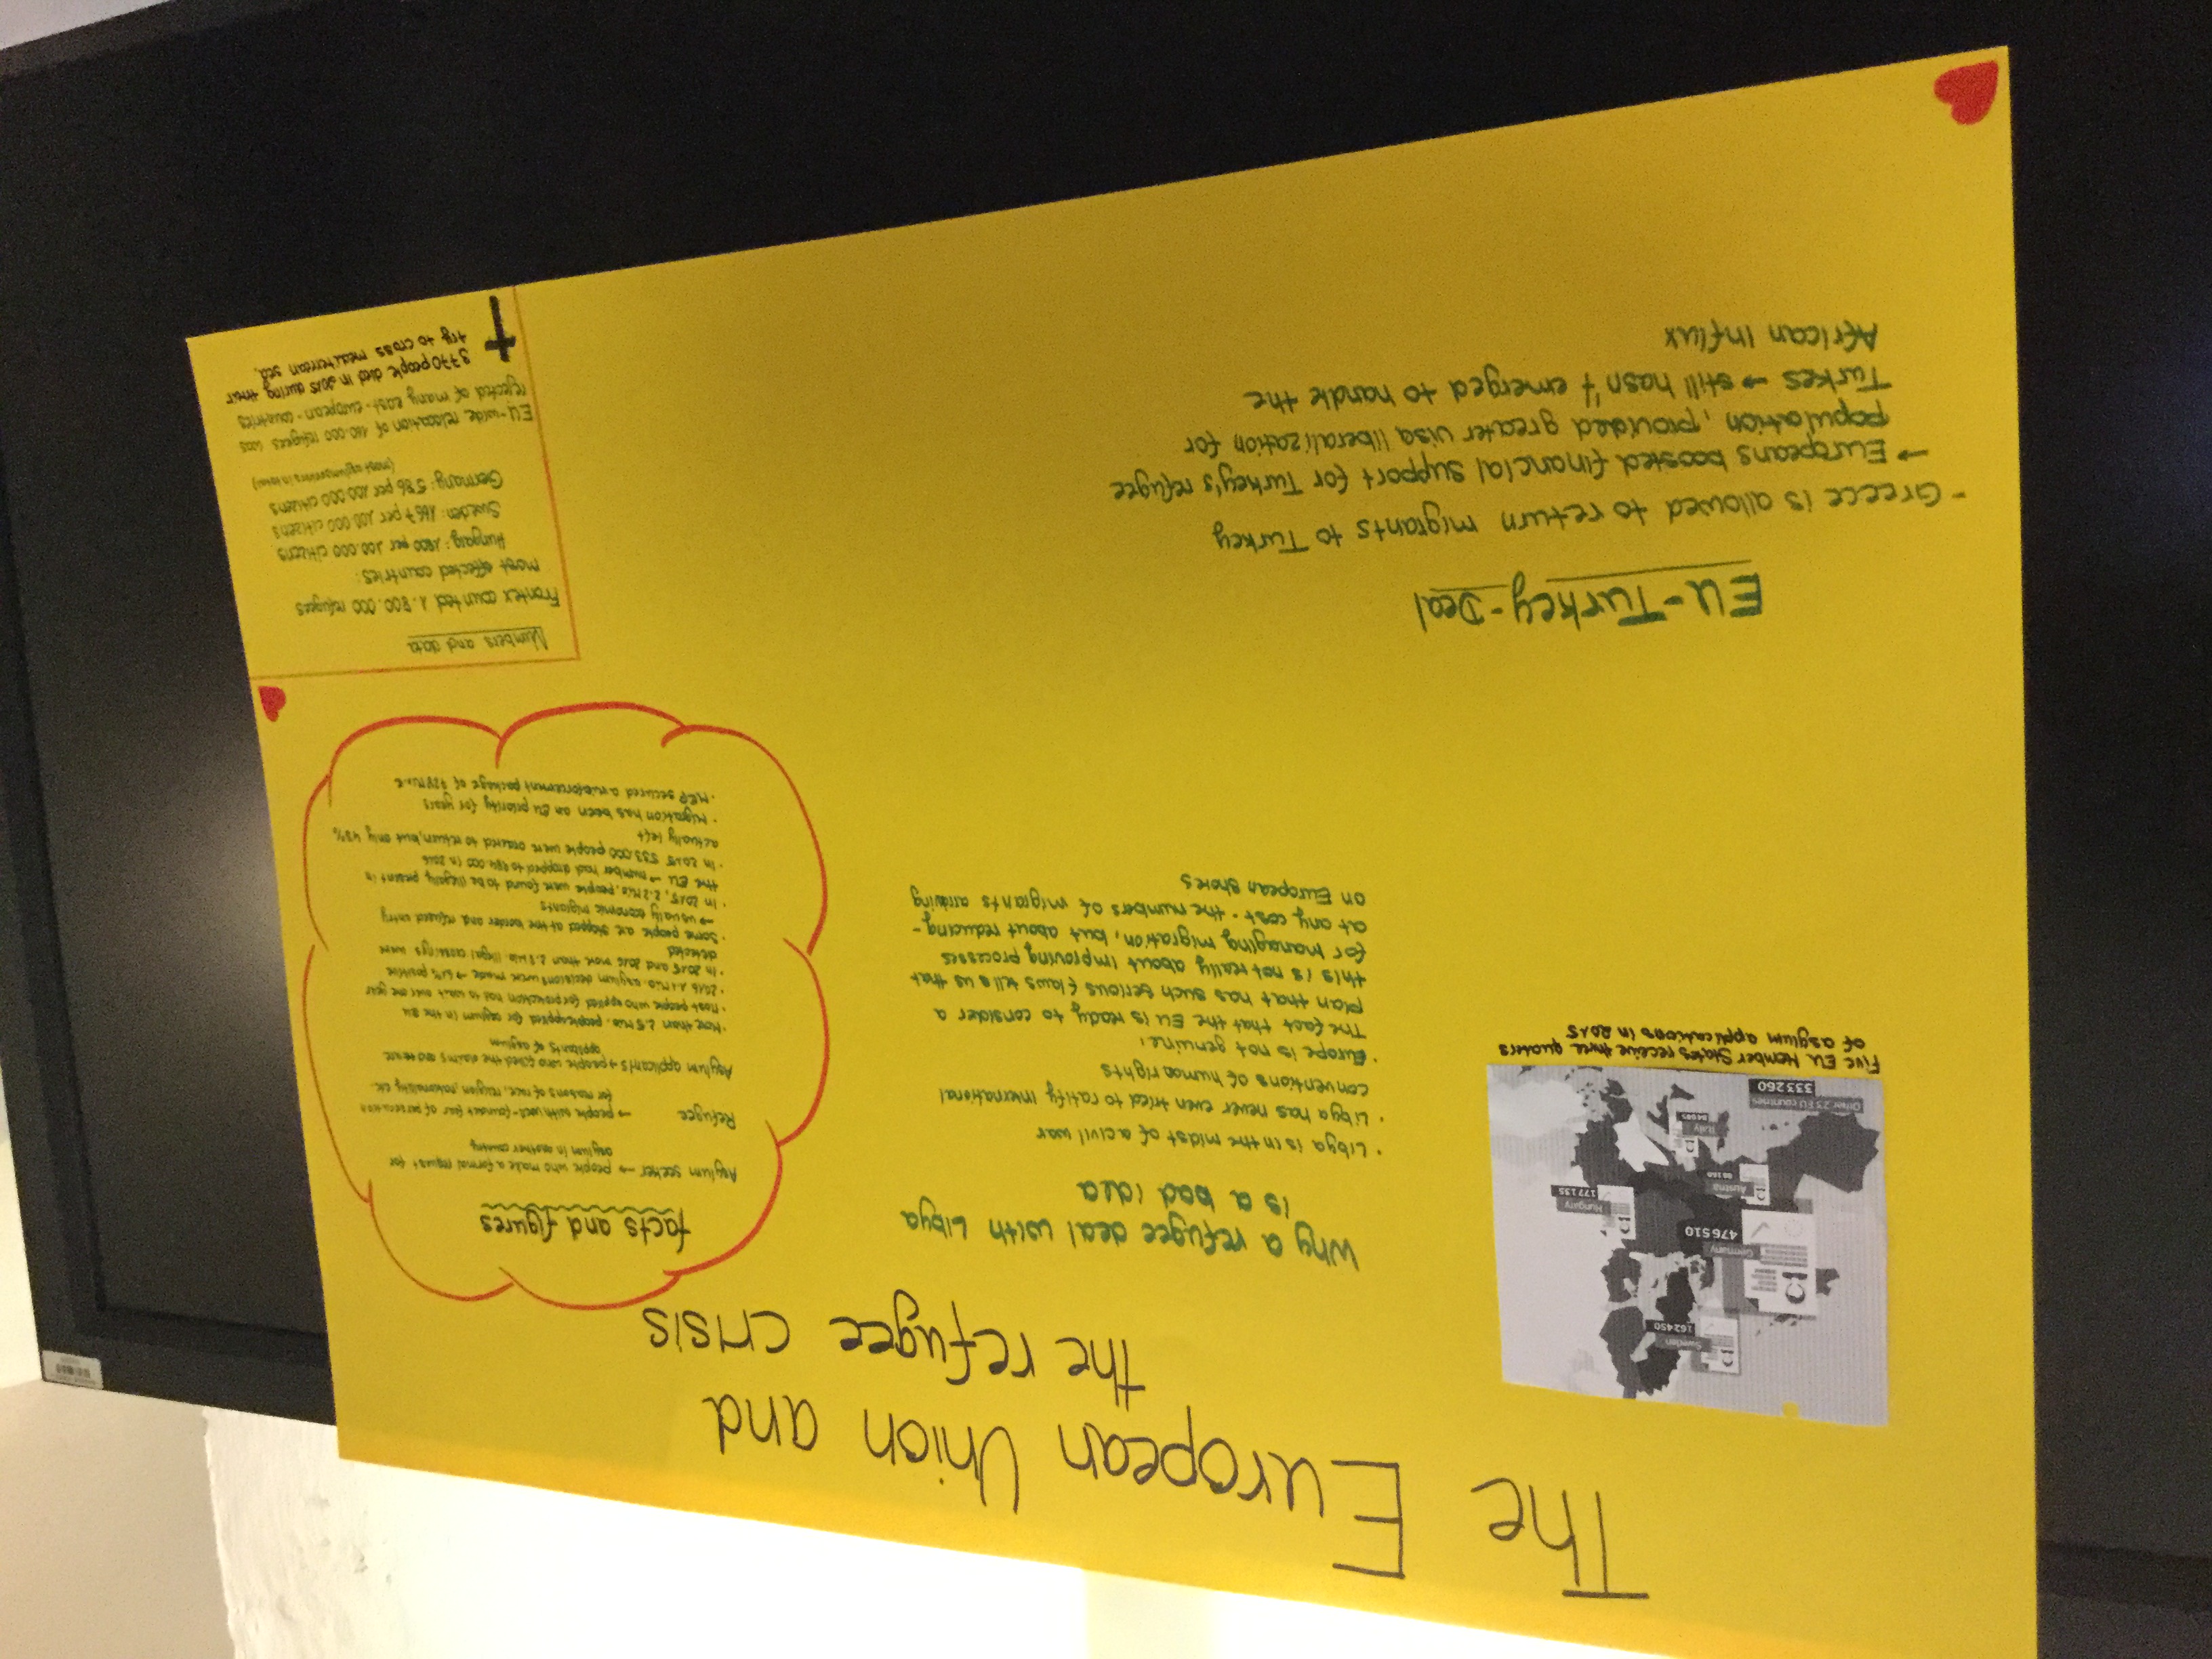 The European Union and
the refugee crisis
Sweden
162450
Germany
476510
Hungary
177135
Austria
Italy
Other 23 EU countries
333260
Five EU Member States receive three quaters
of asylum applications in 2015
Why a refugee deal with Libya
is a bad idea
· Libya is in the midst of a civil war
· Libya has never even tried to ratify international
conventions of human rights
· Europe is not genuine:
The fact that the EU is ready to consider a
plan that has such serious flaws tells us that
this is not really about improving processes
for managing migration, but about reducing-
at any cost - the numbers of migrants arriving
on European shores
facts and figures
Asylum seeker → people who made a formal request for
asylum in another country
Refugee → people with well-founded fear of persecution
for reasons of race, religion, nationality etc.
Asylum applicants → people who filed the claims and
applicants of asylum
· More than 2.5 Mio. people applied for asylum in the EU
· Most people who applied for protection had to wait over one year
· 2016 1.1 Mio. asylum decisions were made → 61% positive
· In 2015 and 2016 more than 2.3 Mio. illegal crossings were
detected
· Some people are stopped at the border and refused entry
→ usually economic migrants
· In 2015, 2.2 Mio. people were found to be illegally present in
the EU → number had dropped to 984.000 in 2016
· In 2015 533.000 people were ordered to return, but only 43%
actually left
· Migration has been an EU priority for years
· MEP secured a reinforcement package of
EU-Turkey-Deal
- Greece is allowed to return migrants to Turkey
→ Europeans boosted financial support for Turkey's refugee
population, provided greater visa liberalization for
Turkes → still hasn't emerged to handle the
African influx
Numbers and data
Frontex counted 1.800.000 refugees
most affected countries:
Hungary: 1800 per 100.000 citizens
Sweden: 1667 per 100.000 citizens
Germany: 586 per 100.000 citizens
(most asylumseekers in total)
EU-wide relocation of 160.000 refugees was
rejected of many east-european-countries
3770 people died in 2015 during their
try to cross mediterrean sea.